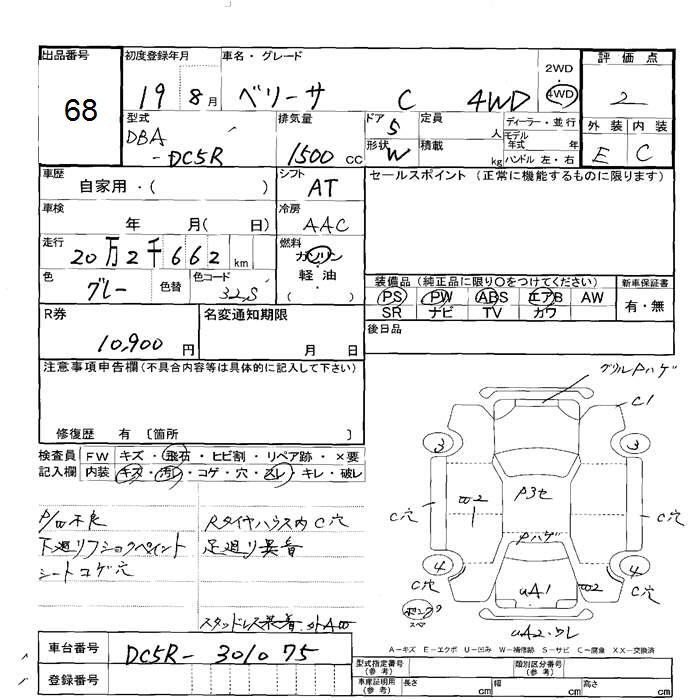 出品番号
68
初度登録年月
19 8月
車名・グレード
ベリーサ C 4WD
2WD
・
4WD
評価点
2
外装 内装
E C
型式
DBA
-DC5R
排気量
1500 CC
ドア 5
形状 W
定員 人
積載 kg
ディーラー・並行
モデル
年式 年
ハンドル 左・右
車歴
自家用・( )
シフト
AT
セールスポイント (正常に機能するものに限ります)
車検
年 月( 日)
冷房
AAC
走行
20万2千662 km
燃料
ガソリン
軽油
( )
色
グレー
色替
色コード
32S
装備品 (純正品に限り○をつけてください)
PS PW ABS エアB AW
SR ナビ TV カワ
新車保証書
有・無
R券
10,900 円
名変通知期限
月 日
後日品
注意事項申告欄(不具合内容等は具体的に記入して下さい)
修復歴 有 〔箇所 〕
検査員
記入欄
FW キズ・飛石・ヒビ割・リペア跡・×要
内装 キズ・汚レ・コゲ・穴・スレ・キレ・破レ
P/W不良
下廻リフショクペイント
シートコゲ穴
Rタイヤハウス内C穴
足廻リ異音
スタッドレス装着
グリルPハゲ
C1
3
3
W2
P3セ
Pハゲ
C穴
C穴
4
4
C穴
UA1
W2
C穴
スペ
UA2・ワレ
A-キズ E-エクボ U-凹み W-補修跡 S-サビ C-腐食 XX-交換済
車台番号
DC5R-301075
登録番号
型式指定番号
(参考)
類別区分番号
(参考)
車庫証明用
(参考)
長さ cm 幅 cm 高さ cm